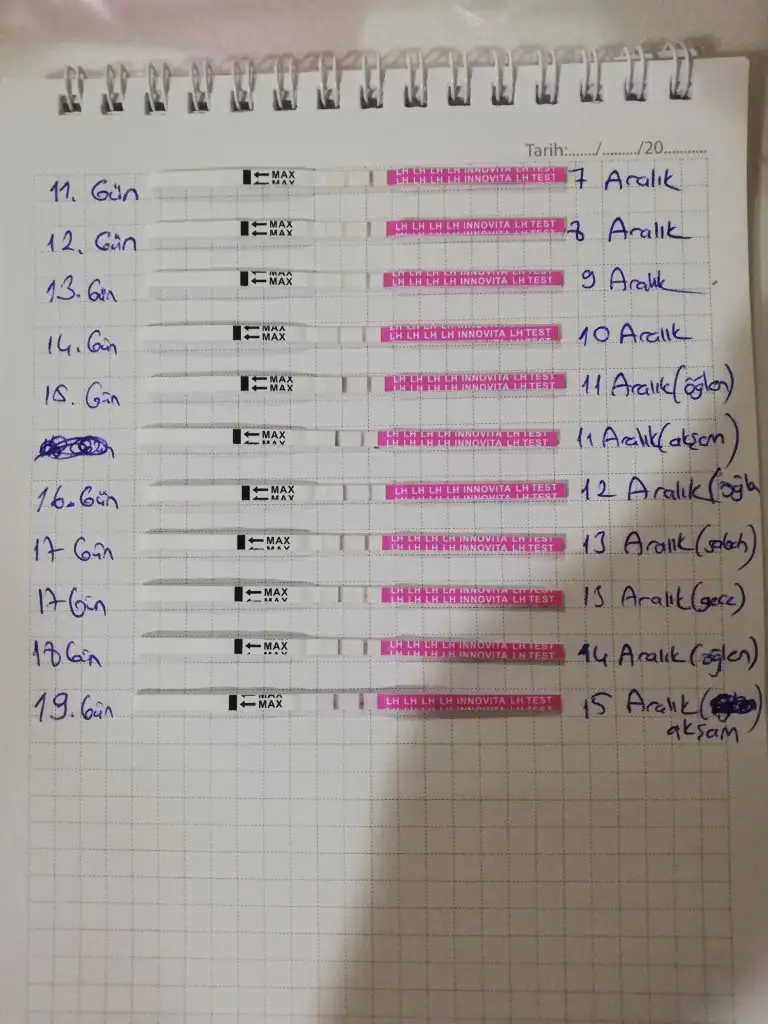 Tarih:....../........./20...........
11. Gün ← MAX LH LH LH LH INNOVITA LH TEST 7 Aralık
12. Gün ← MAX LH LH LH LH INNOVITA LH TEST 8 Aralık
13. Gün ← MAX LH LH LH LH INNOVITA LH TEST 9 Aralık
14. Gün ← MAX LH LH LH LH INNOVITA LH TEST 10 Aralık
15. Gün ← MAX LH LH LH LH INNOVITA LH TEST 11 Aralık (öğlen)
← MAX LH LH LH LH INNOVITA LH TEST 11 Aralık (akşam)
16. Gün ← MAX LH LH LH LH INNOVITA LH TEST 12 Aralık (öğle
17 Gün ← MAX LH LH LH LH INNOVITA LH TEST 13 Aralık (sabah)
17 Gün ← MAX LH LH LH LH INNOVITA LH TEST 13 Aralık (gece)
18 Gün ← MAX LH LH LH LH INNOVITA LH TEST 14 Aralık (öğlen)
19. Gün ← MAX LH LH LH LH INNOVITA LH TEST 15 Aralık (
akşam)